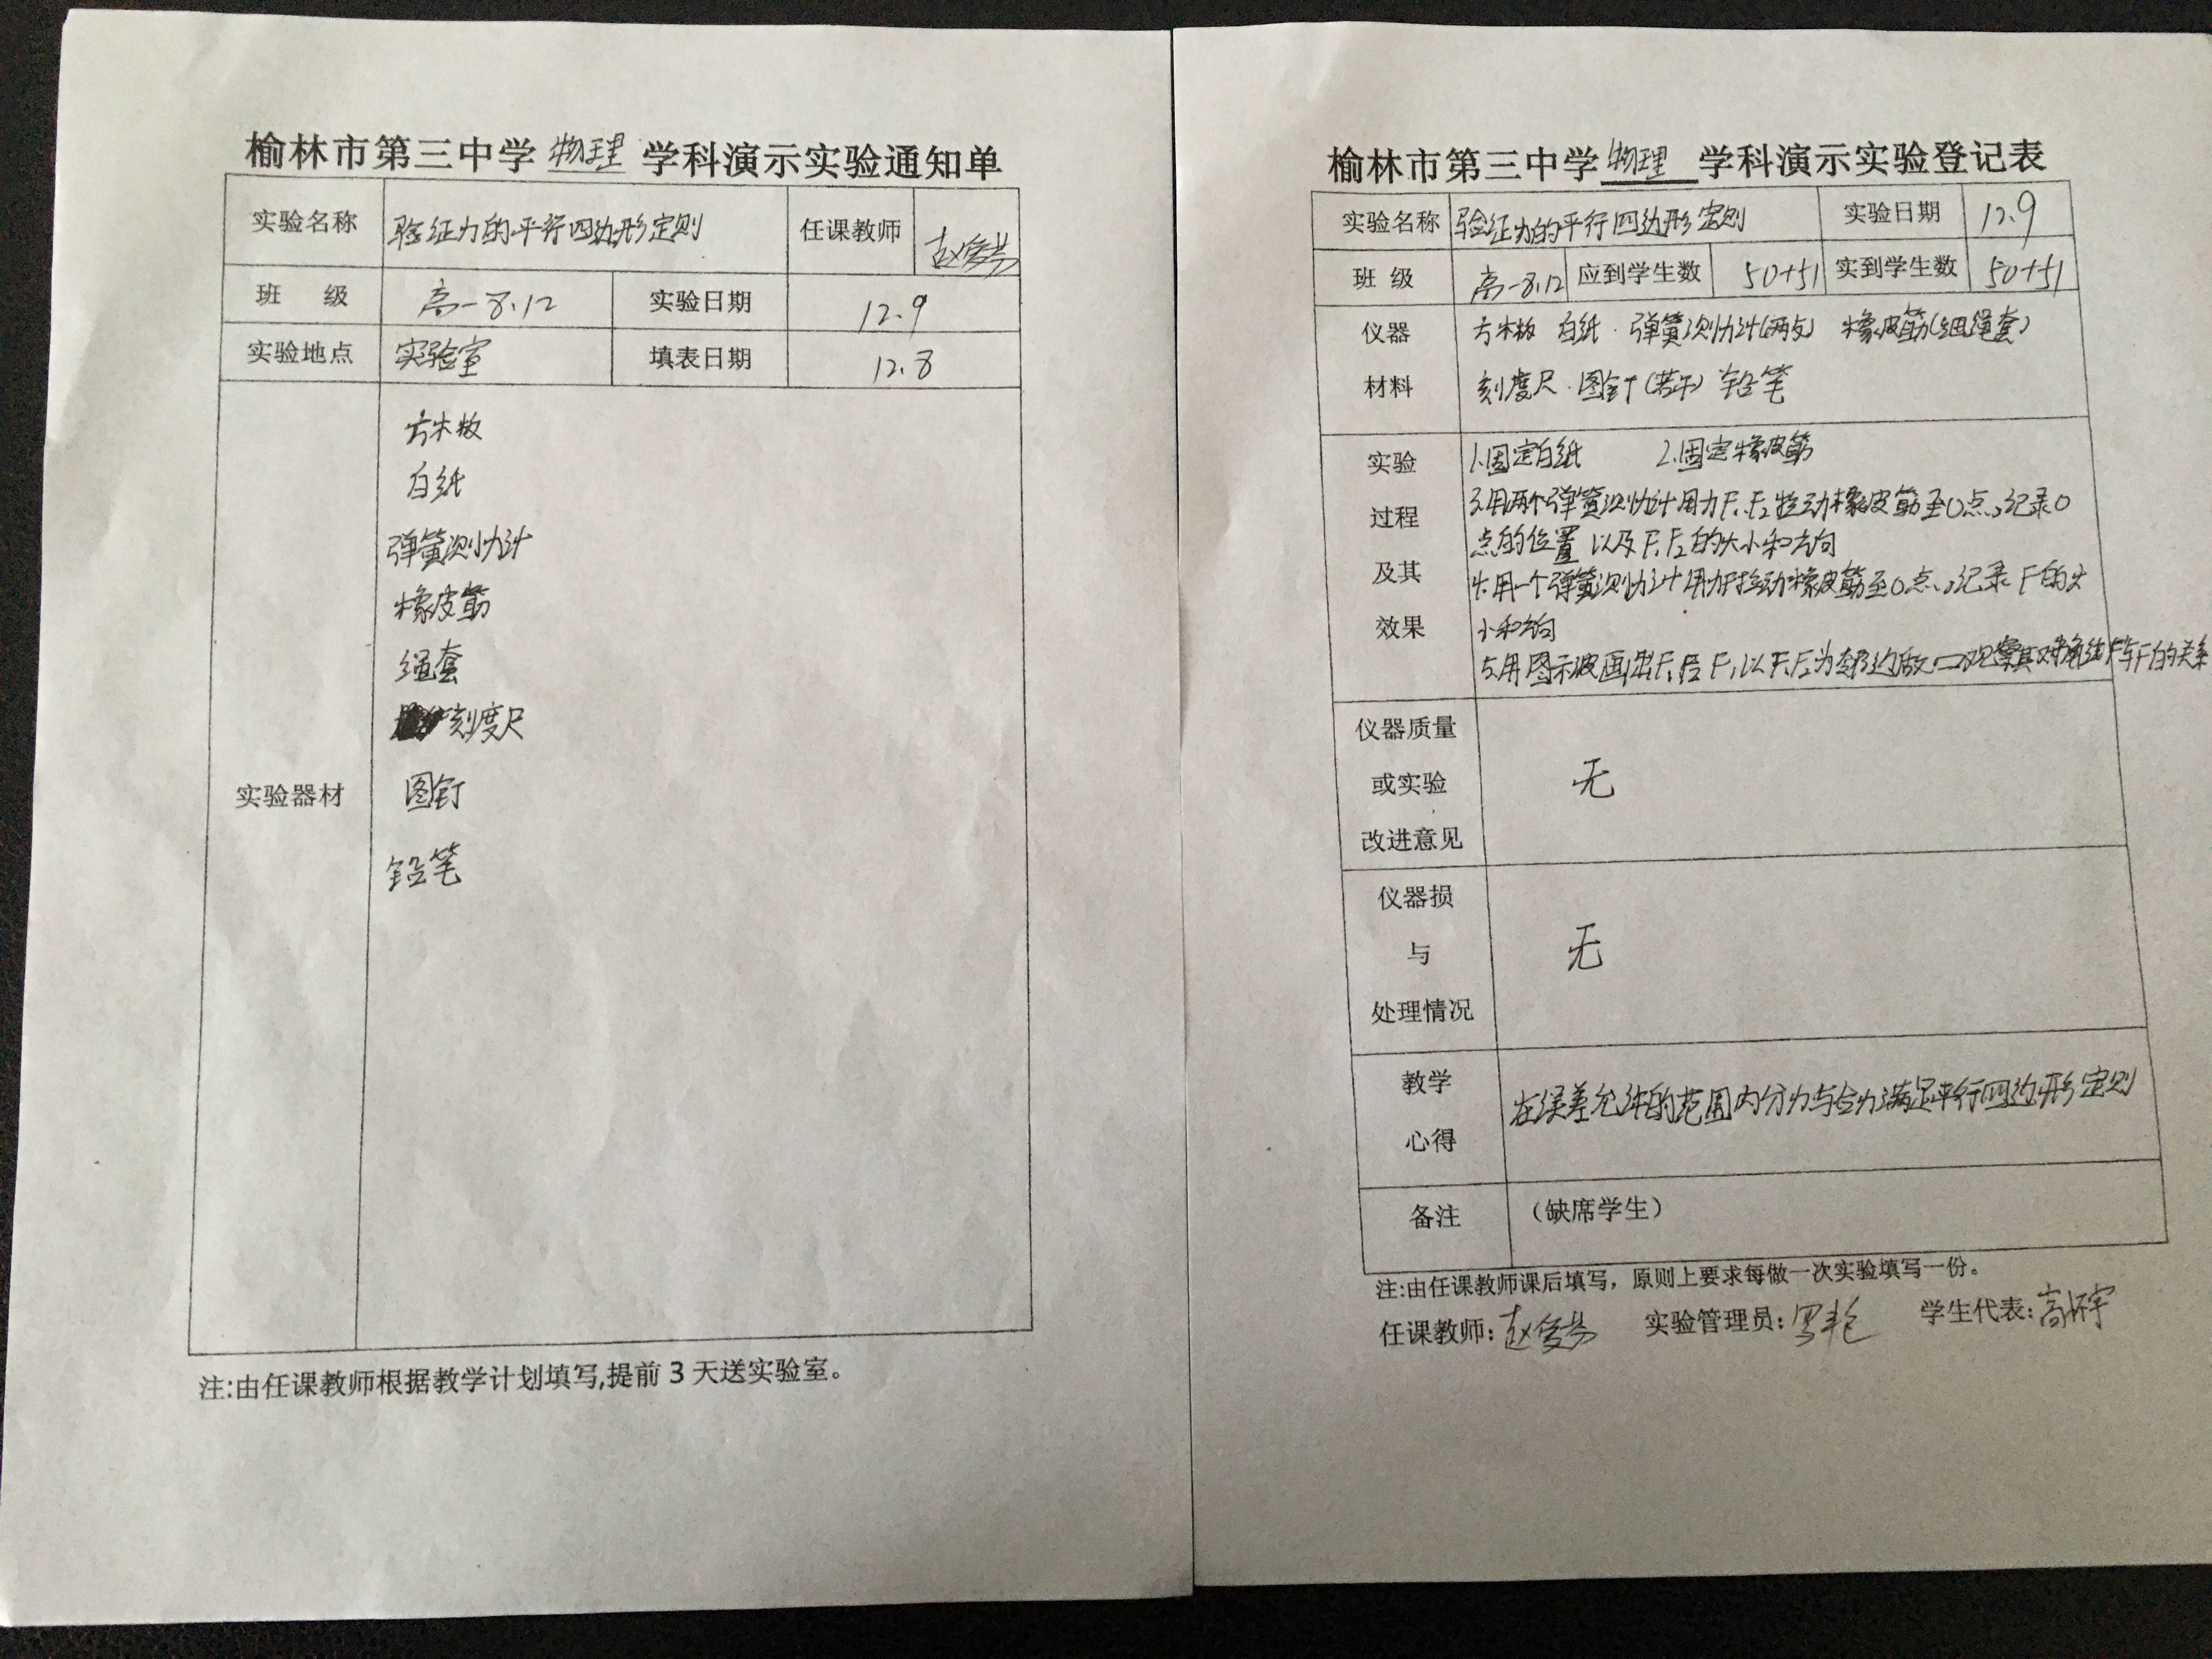 榆林市第三中学 物理 学科演示实验通知单
实验名称 验证力的平行四边形定则 任课教师
班 级 高一8、12 实验日期 12.9
实验地点 实验室 填表日期 12.8
实验器材
方木板
白纸
弹簧测力计
橡皮筋
绳套
刻度尺
图钉
铅笔
注:由任课教师根据教学计划填写,提前 3 天送实验室。
榆林市第三中学 物理 学科演示实验登记表
实验名称 验证力的平行四边形定则 实验日期 12.9
班 级 高一8、12 应到学生数 50+51 实到学生数 50+51
仪器 方木板 白纸·弹簧测力计(两支) 橡皮筋(细绳套)
材料 刻度尺·图钉(若干) 铅笔
实验 1.固定白纸 2.固定橡皮筋
过程 3.用两个弹簧测力计用力F₁、F₂拉动橡皮筋至O点,记录O
点的位置 以及F₁F₂的大小和方向
及其 4.用一个弹簧测力计用力F拉动橡皮筋至O点,记录F的大
效果 小和方向
5.用图示法画出F₁ F₂ F,以F₁F₂为邻边做▱观察其对角线F'与F的关系
仪器质量
或实验 无
改进意见
仪器损
与 无
处理情况
教学 在误差允许的范围内分力与合力满足平行四边形定则
心得
备注 （缺席学生）
注:由任课教师课后填写，原则上要求每做一次实验填写一份。
任课教师: 实验管理员: 学生代表: